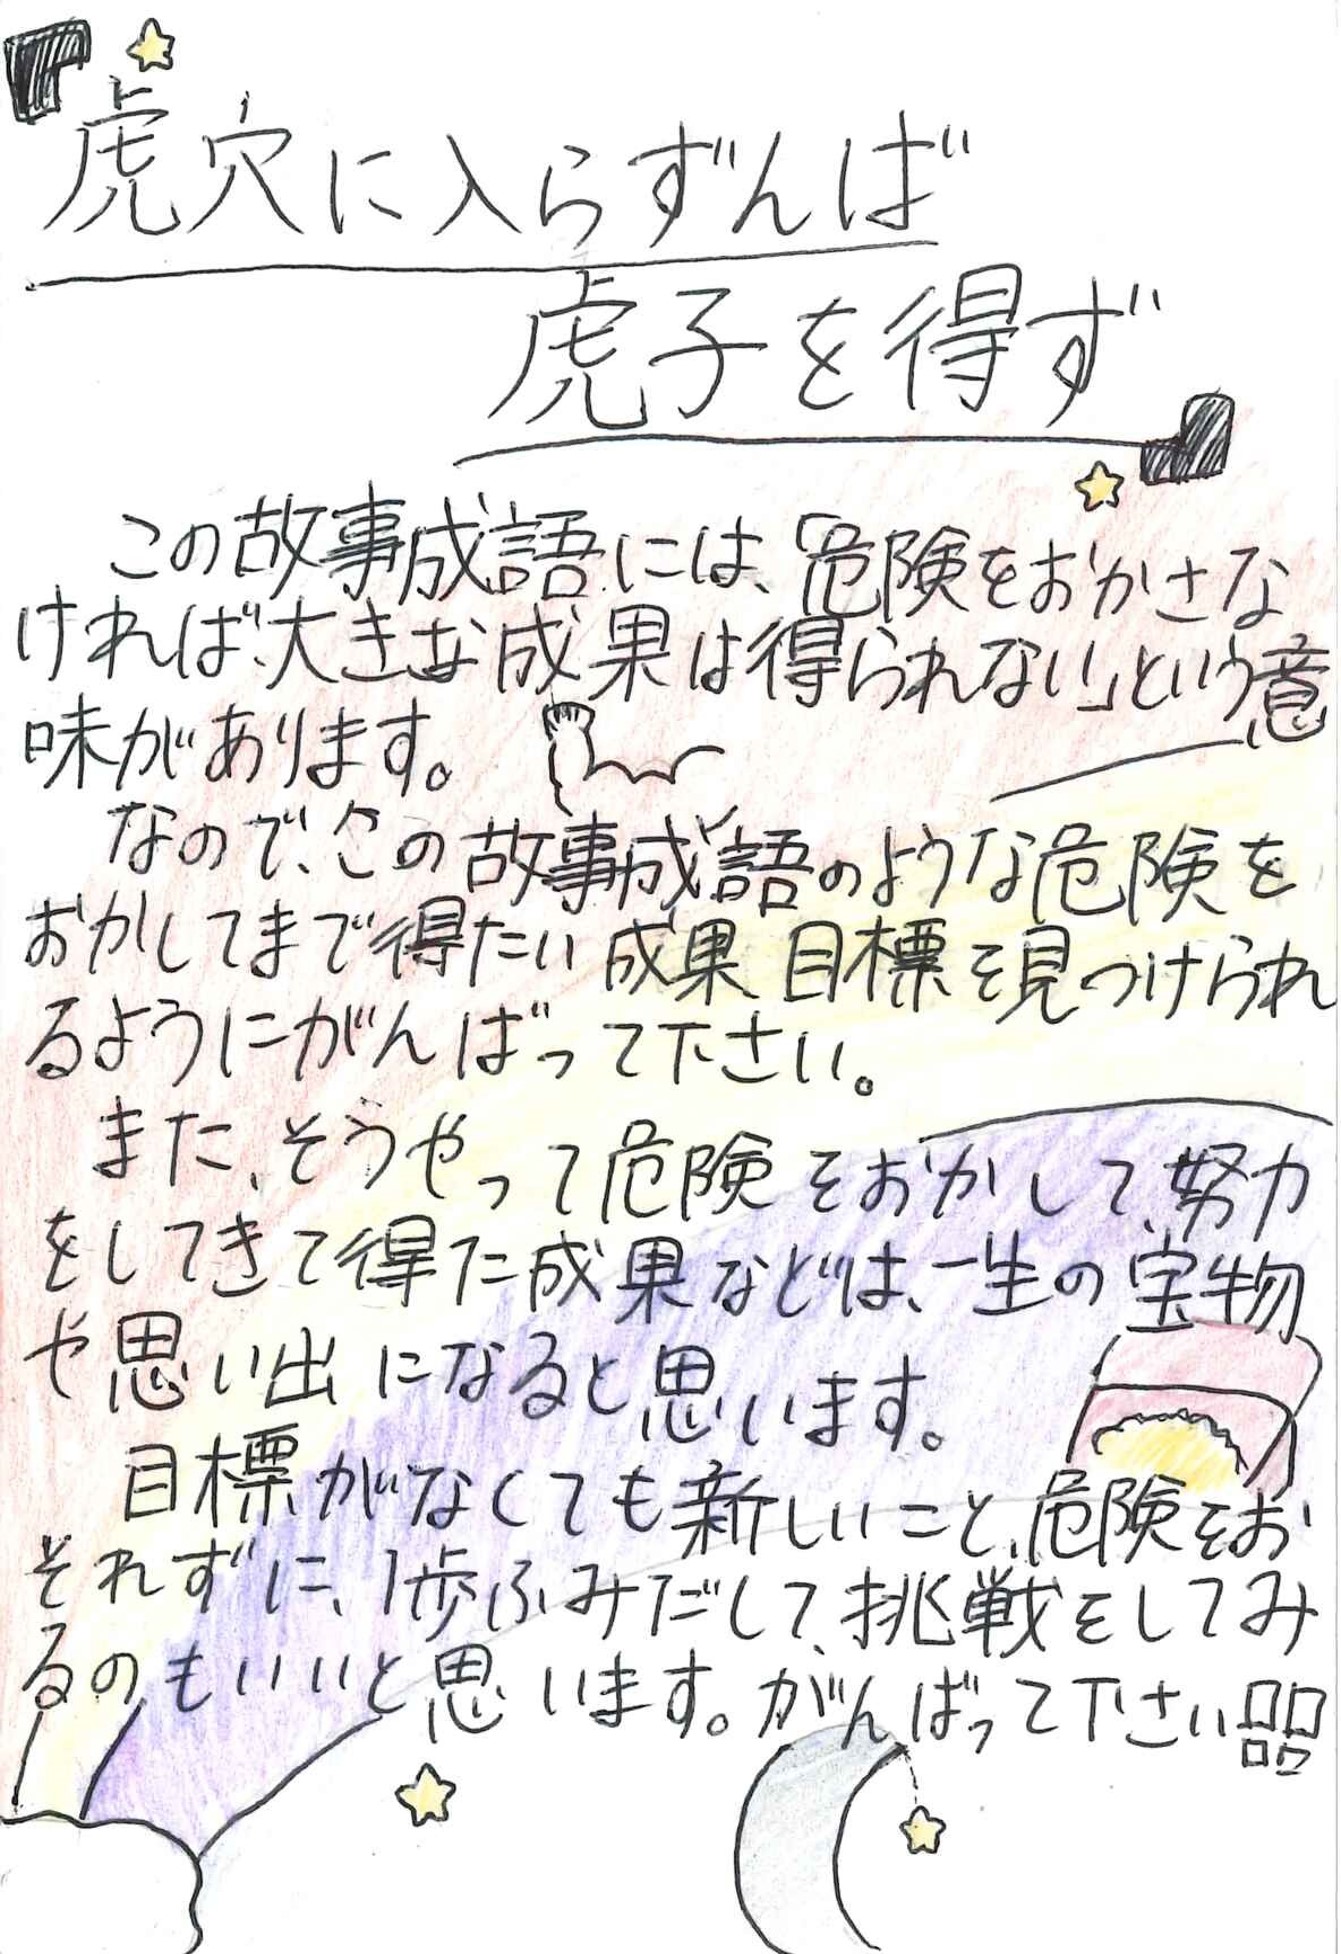 『虎穴に入らずんば
虎子を得ず』
この故事成語には、「危険をおかさな
ければ、大きな成果は得られない」という意
味があります。
なので、この故事成語のような危険を
おかしてまで得たい成果、目標を見つけられ
るようにがんばって下さい。
また、そうやって危険をおかして、努力
をしてきて得た成果などは、一生の宝物
や思い出になると思います。
目標がなくても新しいこと、危険をお
それずに、1歩ふみだして、挑戦をしてみ
るのもいいと思います。がんばって下さい!!